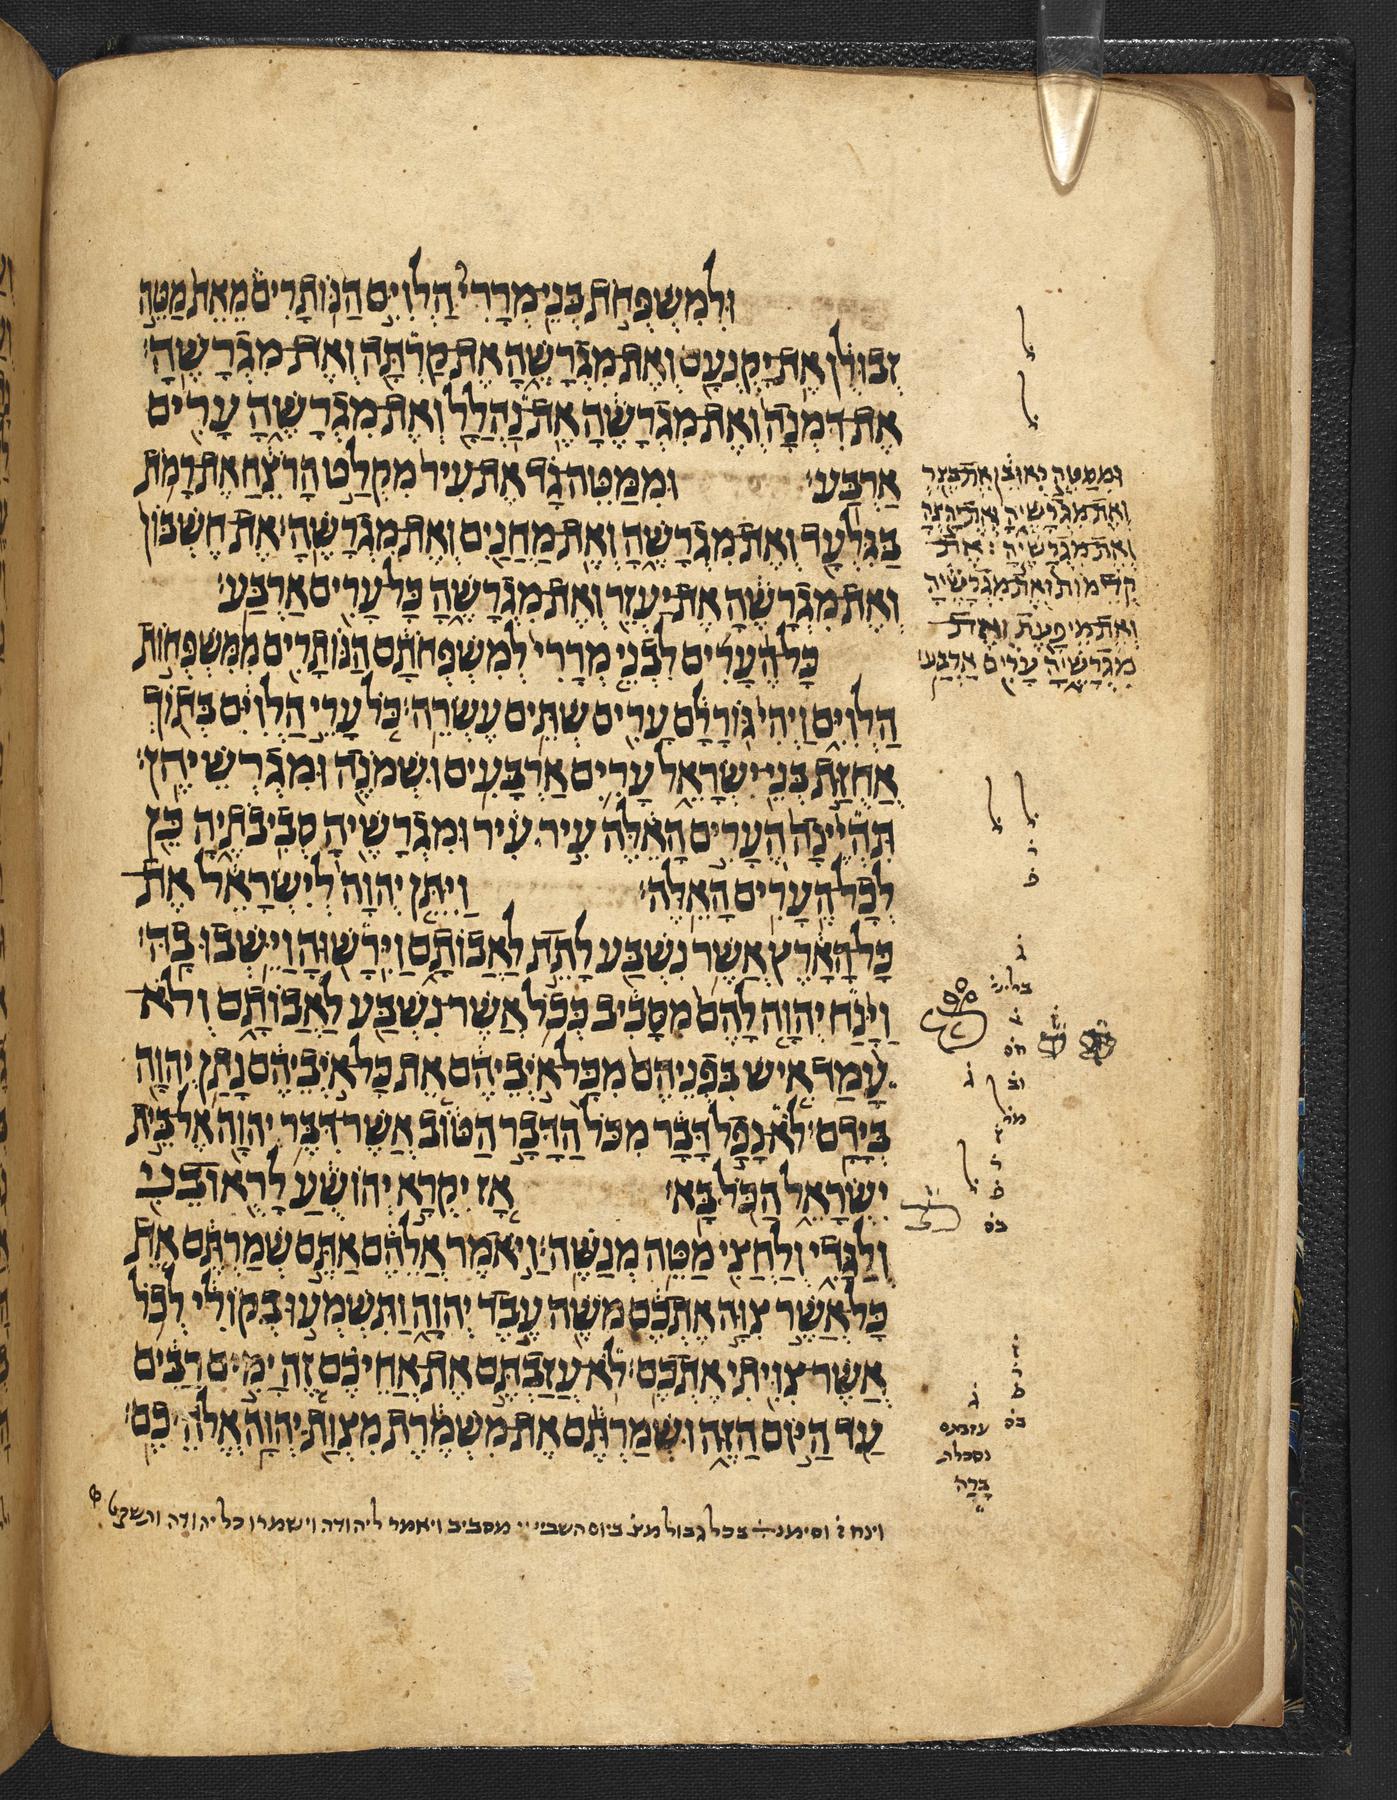 וּלְמִשְׁפְּחֹת בְּנֵי מְרָרִי הַלְוִיִּם הַנּוֹתָרִים מֵאֵת מַטֵּה
זְבוּלֻן אֶת יָקְנְעָם וְאֶת מִגְרָשֶׁהָ אֶת קַרְתָּה וְאֶת מִגְרָשֶׁהָ׃
אֶת דִּמְנָה וְאֶת מִגְרָשֶׁהָ אֶת נַהֲלָל וְאֶת מִגְרָשֶׁהָ עָרִים
אַרְבַּע׃ וּמִמַּטֵּה גָד אֶת עִיר מִקְלַט הָרֹצֵחַ אֶת רָמֹת
בַּגִּלְעָד וְאֶת מִגְרָשֶׁהָ וְאֶת מַחֲנַיִם וְאֶת מִגְרָשֶׁהָ׃ אֶת חֶשְׁבּוֹן
וְאֶת מִגְרָשֶׁהָ אֶת יַעְזֵר וְאֶת מִגְרָשֶׁהָ כָּל עָרִים אַרְבַּע׃
כָּל הֶעָרִים לִבְנֵי מְרָרִי לְמִשְׁפְּחֹתָם הַנּוֹתָרִים מִמִּשְׁפְּחוֹת
הַלְוִיִּם וַיְהִי גּוֹרָלָם עָרִים שְׁתֵּים עֶשְׂרֵה׃ כֹּל עָרֵי הַלְוִיִּם בְּתוֹךְ
אֲחֻזַּת בְּנֵי יִשְׂרָאֵל עָרִים אַרְבָּעִים וּשְׁמֹנֶה וּמִגְרְשֵׁיהֶן׃
תִּהְיֶינָה הֶעָרִים הָאֵלֶּה עִיר עִיר וּמִגְרָשֶׁיהָ סְבִיבֹתֶיהָ כֵּן
לְכָל הֶעָרִים הָאֵלֶּה׃ וַיִּתֵּן יְהוָה לְיִשְׂרָאֵל אֶת
כָּל הָאָרֶץ אֲשֶׁר נִשְׁבַּע לָתֵת לַאֲבוֹתָם וַיִּרָשׁוּהָ וַיֵּשְׁבוּ בָהּ׃
וַיָּנַח יְהוָה לָהֶם מִסָּבִיב כְּכֹל אֲשֶׁר נִשְׁבַּע לַאֲבוֹתָם וְלֹא
עָמַד אִישׁ בִּפְנֵיהֶם מִכָּל אֹיְבֵיהֶם אֵת כָּל אֹיְבֵיהֶם נָתַן יְהוָה
בְּיָדָם׃ לֹא נָפַל דָּבָר מִכֹּל הַדָּבָר הַטּוֹב אֲשֶׁר דִּבֶּר יְהוָה אֶל בֵּית
יִשְׂרָאֵל הַכֹּל בָּא׃ אָז יִקְרָא יְהוֹשֻׁעַ לָראוּבֵנִי
וְלַגָּדִי וְלַחֲצִי מַטֵּה מְנַשֶּׁה׃ וַיֹּאמֶר אֲלֵהֶם אַתֶּם שְׁמַרְתֶּם אֵת
כָּל אֲשֶׁר צִוָּה אֶתְכֶם מֹשֶׁה עֶבֶד יְהוָה וַתִּשְׁמְעוּ בְקוֹלִי לְכֹל
אֲשֶׁר צִוִּיתִי אֶתְכֶם׃ לֹא עֲזַבְתֶּם אֶת אֲחֵיכֶם זֶה יָמִים רַבִּים
עַד הַיּוֹם הַזֶּה וּשְׁמַרְתֶּם אֶת מִשְׁמֶרֶת מִצְוַת יְהוָה אֱלֹהֵיכֶם׃
וּמִמַּטֵּה רְאוּבֵן אֶת בֶּצֶר
וְאֶת מִגְרָשֶׁיהָ וְאֶת יַהְצָה
וְאֶת מִגְרָשֶׁיהָ׃ אֶת
קְדֵמוֹת וְאֶת מִגְרָשֶׁיהָ
וְאֶת מֵיפַעַת וְאֶת
מִגְרָשֶׁיהָ עָרִים אַרְבַּע׃
עזבתם
נסכלת
ברה
וינח וסימנ בכל גבול מצ ביום השביי מסביב ויאמר ליהודה וישמרו כל יהודה והשקט